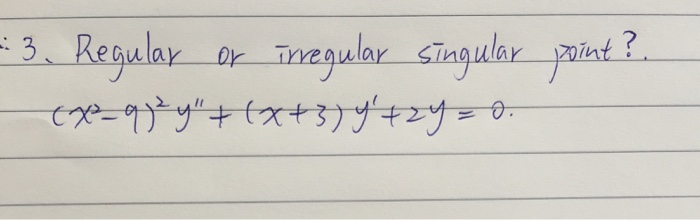 3. Regular or irregular singular point?.
(x²-9)² y" + (x+3) y' + 2y = 0.